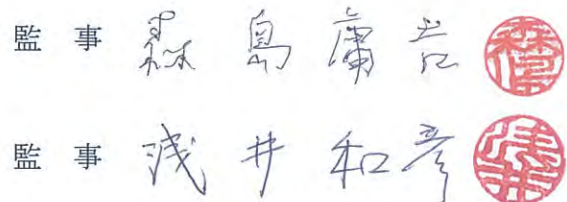 監事 森島庸吉
監事 浅井和彦